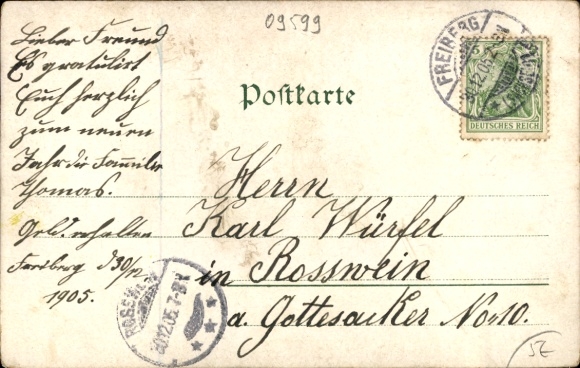 09599
Lieber Freund
Es gratulirt
Euch herzlich
zum neuen
Jahr die Fammilie
Thomas.
Geld erhalten
Freiberg d 30/12
1905.
Postkarte
FREIBERG
30.12.05
5
DEUTSCHES REICH
Herrn
Karl Würfel
in Rosswein
a. Gottesacker No 10.
ROSSW
30.12.05. 7-8 N
5Z